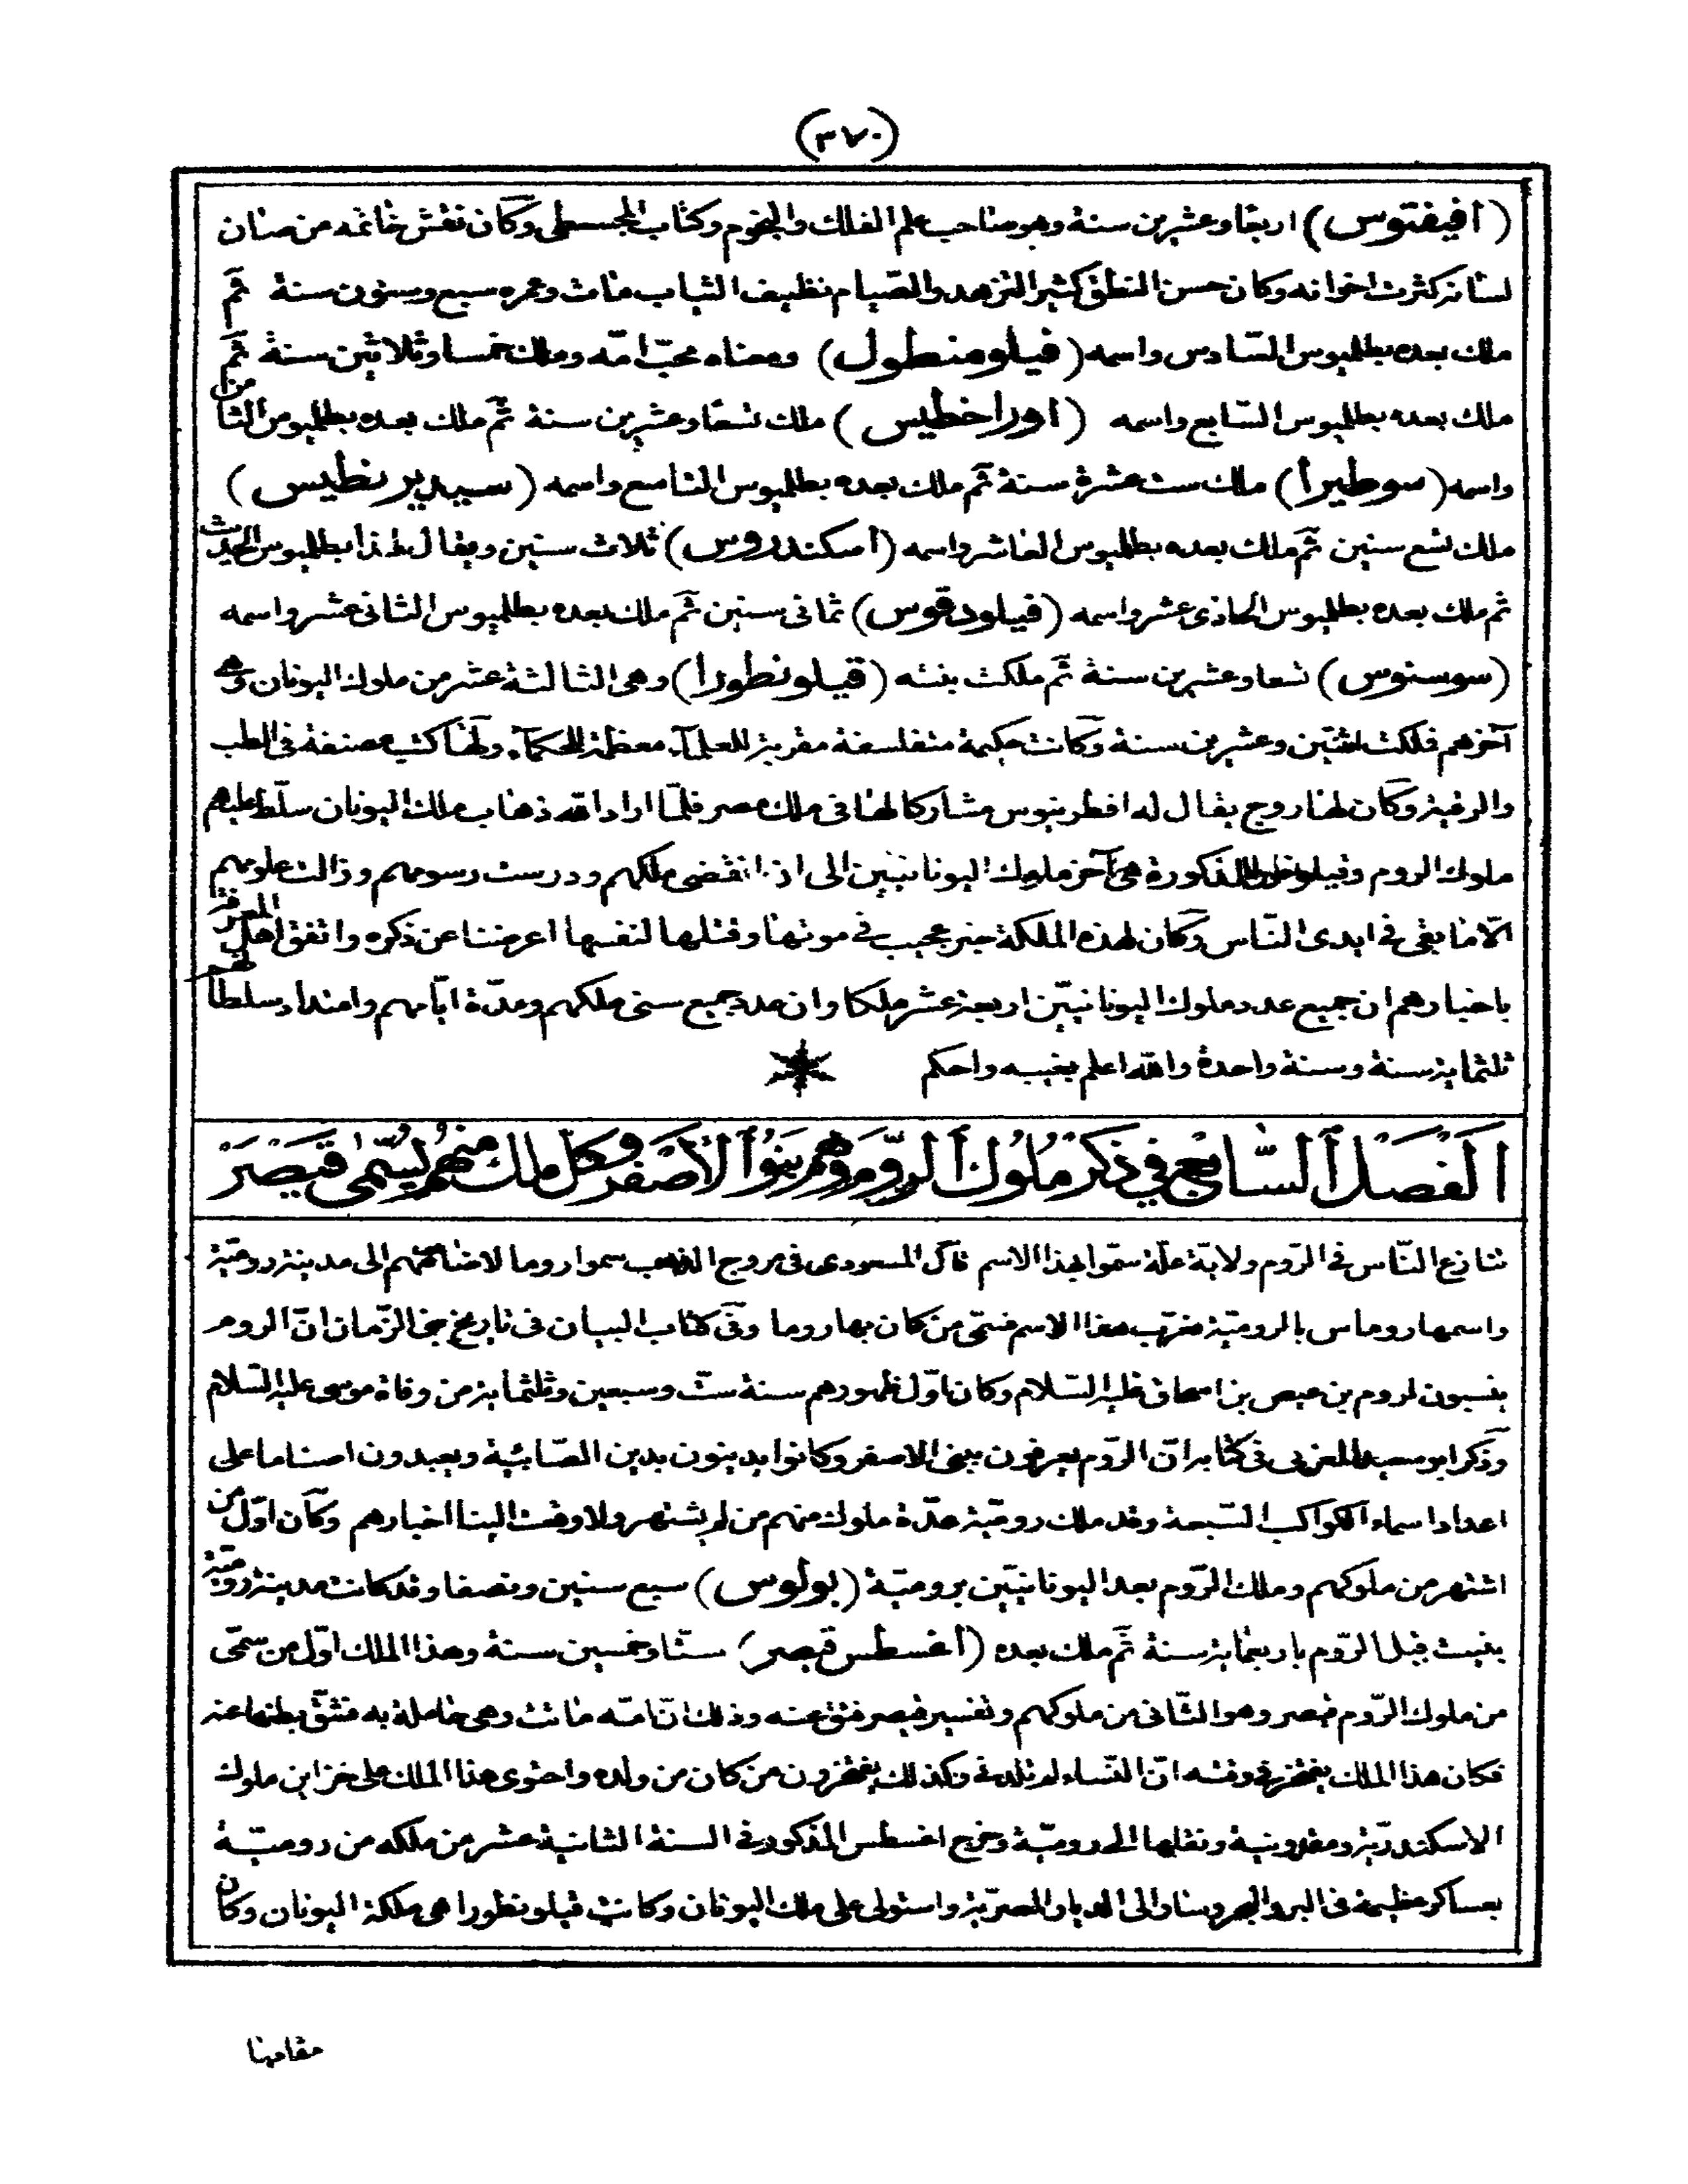 (٣٧٠)
(افيفتوس) اربعا وعشرين سنة وهو صاحب علم الفلك والنجوم وكتاب المجسطى وكان نقش خاتمه من صان
لسانه كثرت اخوانه وكان حسن النطق كثير التزهد والصيام نظيف الثياب مات وعمره سبع وستون سنة ثم
ملك بعده بطلميوس السادس واسمه (فيلومنطول) ومعناه محب امه وملك خمسا وثلاثين سنة ثم
ملك بعده بطلميوس السابع واسمه (اوراخطيس) ملك تسعا وعشرين سنة ثم ملك بعده بطلميوس الثامن
واسمه (سوطيرا) ملك ست عشرة سنة ثم ملك بعده بطلميوس التاسع واسمه (سيديرنطيس)
ملك تسع سنين ثم ملك بعده بطلميوس العاشر واسمه (اسكندروس) ثلاث سنين ويقال لهذا بطلميوس الحديث
ثم ملك بعده بطلميوس الحادى عشر واسمه (فيلودقوس) ثمانى سنين ثم ملك بعده بطلميوس الثانى عشر واسمه
(سوستوس) تسعا وعشرين سنة ثم ملكت بنته (قيلونطورا) وهى الثالثة عشر من ملوك اليونان وهى
آخرهم فملكت اثنتين وعشرين سنة وكانت حكيمة متفلسفة مقربة للعلماء معظمة للحكماء ولها كتب مصنفة فى الطب
والرقية وكان لها زوج يقال له افطرينوس مشاركا لها فى ملك مصر فلما اراد الله ذهاب ملك اليونان سلط عليهم
ملوك الروم وقيلونطورا المذكورة هى آخر ملوك اليونانيين الى ان انقضى ملكهم ودرست رسومهم وزالت علومهم
الا ما بقى فى ايدى الناس وكان لهذه الملكة خبر عجيب فى موتها وقتلها لنفسها اعرضنا عن ذكره واتفق اهل المعرفة
باخبارهم ان جميع عدد ملوك اليونانيين اربعة عشر ملكا وان عدد جميع سنى ملكهم ومدة ايامهم وامتداد سلطانهم
ثلثماية سنة وسنة واحدة والله اعلم بغيبه واحكم
الفصل السابع في ذكر ملوك الروم وهم بنوا الاصفر وكل ملك منهم يسمى قيصر
تنازع الناس فى الروم ولاية علة سموا بهذا الاسم قال المسعودى فى مروج الذهب سموا روما لاضافتهم الى مدينة رومية
واسمها روماس بالرومية فعرب هذا الاسم فسمى من كان بها روما وفى كتاب البيان فى تاريخ بنى الزمان ان الروم
ينسبون لروم بن عيص بن اسحاق عليه السلام وكان اول ظهورهم سنة ست وسبعين وثلثماية من وفاة موسى عليه السلام
وذكر ابو سعيد المغربى فى كتابه ان الروم يعرفون ببنى الاصفر وكانوا يدينون بدين الصابئية ويعبدون اصناما على
اعداد اسماء الكواكب السبعة وقد ملك رومية عدة ملوك منهم من لم يشتهر ولا وقعت الينا اخبارهم وكان اول من
اشتهر من ملوكهم وملك الروم بعد اليونانيين برومية (بولوس) سبع سنين ونصفا وقد كانت مدينة رومية
بنيت قبل الروم باربعماية سنة ثم ملك بعده (اغسطس قيصر) ستا وخمسين سنة وهذا الملك اول من سمى
من ملوك الروم قيصر وهو الثانى من ملوكهم وتفسير قيصر فشق عنه وذلك ان امه ماتت وهى حاملة به فشق بطنها عنه
فكان هذا الملك يفتخر فى وقته ان النساء لم تلده وكذلك يفتخرون من كان من ولده واحتوى هذا الملك على خزاين ملوك
الاسكندرية ومقدونية ونقلها الى رومية وخرج اغسطس المذكور فى السنة الثانية عشر من ملكه من رومية
بعساكر عظيمة فى البر والبحر وسار الى الديار المصرية واستولى على ملك اليونان وكانت قيلونطورا هى ملكة اليونان وكان
مقامها